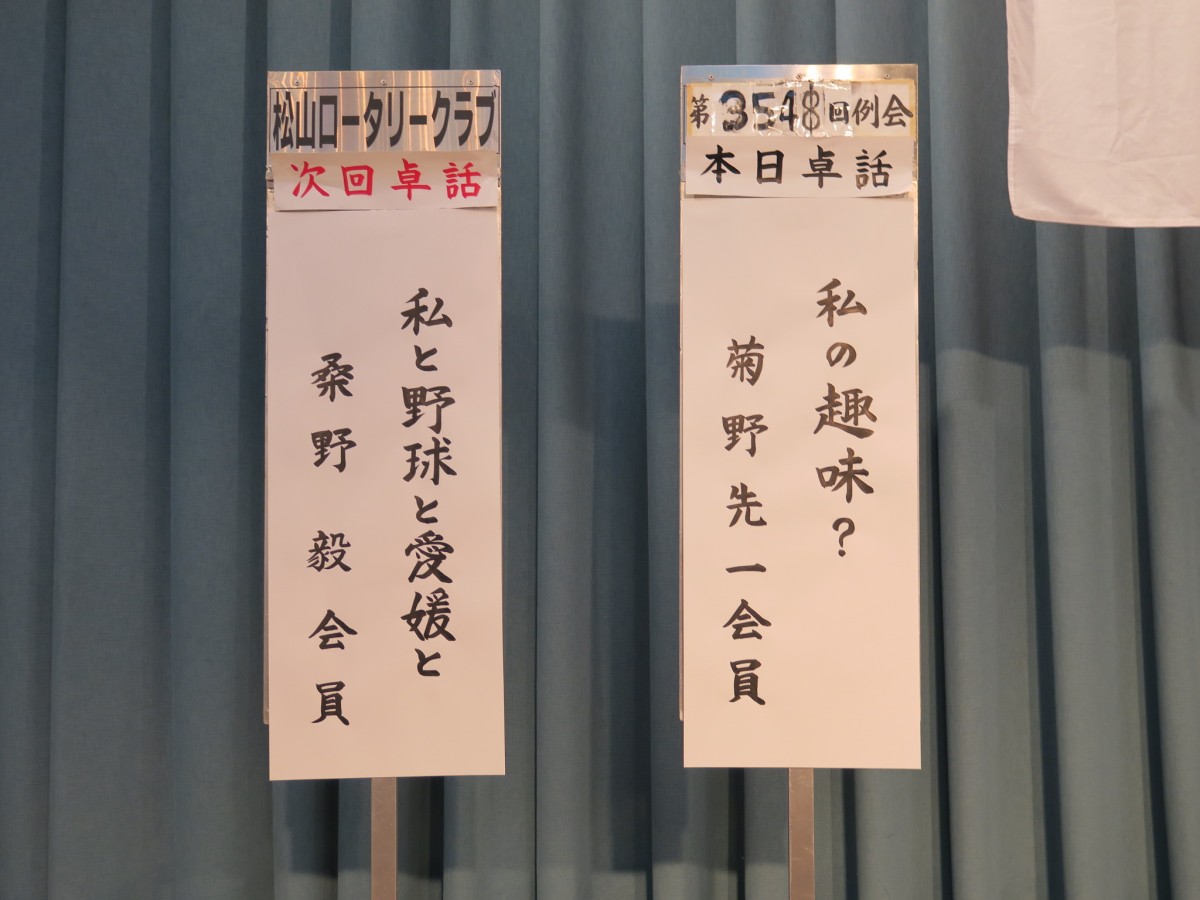 松山ロータリークラブ
次回卓話
私と野球と愛媛と
桑野 毅会員
第3548回例会
本日卓話
私の趣味?
菊野先一会員